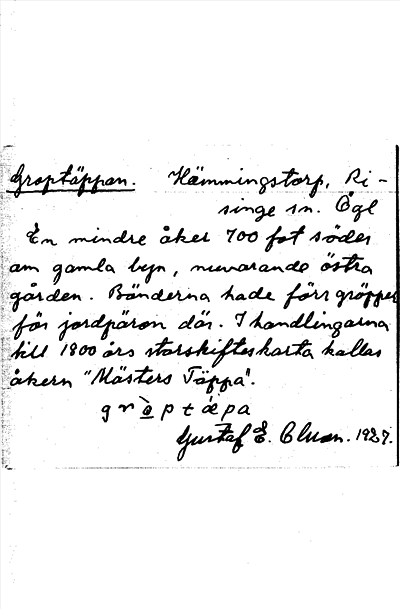 Groptäppan. Hämmingstorp, Ri-
singe sn. Ögl
En mindre åker 700 fot söder
om gamla byn, nuvarande östra
gården. Bönderna hade förr gropper
för jordpäron där. I handlingarna
till 1800 års storskifteskarta kallas
åkern "Mästers Täppa".
gròptäpa
Gustaf E. 1927.